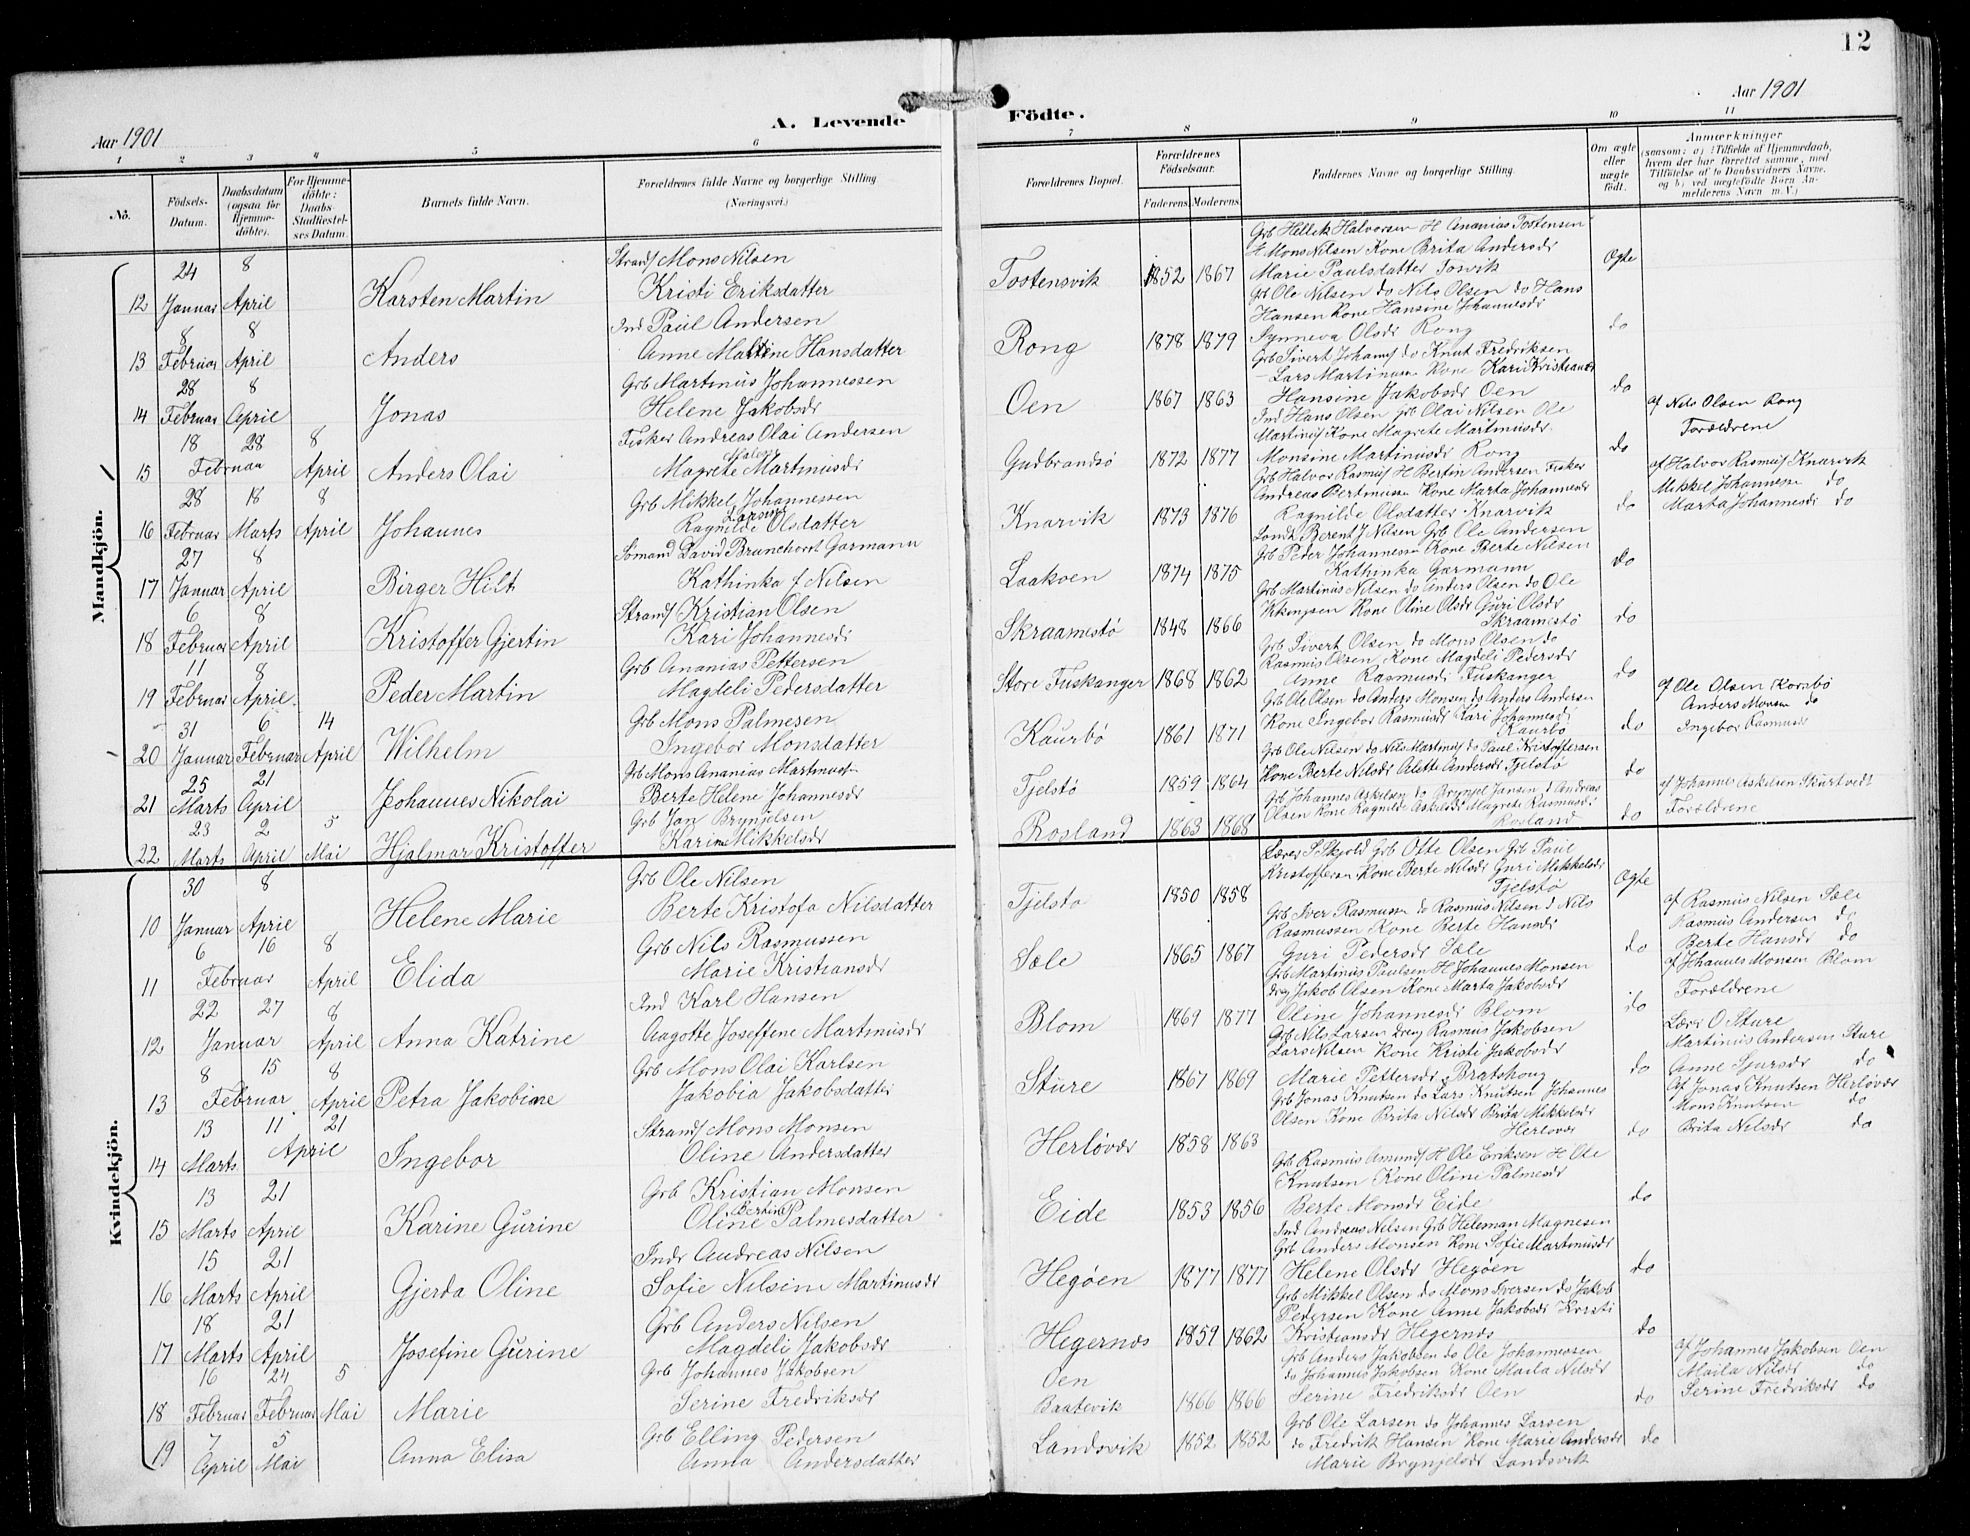 12
Aar 1901
A. Levende
Födte.
Aar 1901
1 2 3 4 5 6
7 8 9 10 11
No.
Födsels-Datum.
Daabsdatum (ogsaa for Hjemme-döbte).
For Hjemme-döbte: Daabs-Stadfæstel-ses Datum.
Barnets fulde Navn.
Forældrenes fulde Navne og borgerlige Stilling (Næringsvei.)
Forældrenes Bopæl.
Forældrenes Födselsaar.
Faderens Moderens
Faddernes Navne og borgerlige Stilling.
Om ægte eller uægte födt.
Anmærkninger (saasom: a) i Tilfælde af Hjemmedaab, hvem der har forrettet samme, med Tilföielse af to Daabsvidners Navne, og b) ved uægtefödte Börn An-melderens Navn m. V.)
Mandkjön.
12 24 Januar 8 April Karsten Martin
Strands Mons Nilsen
Kristi Eriksdatter
Tostensvik 1852 1867
Grb Hellek Halvorsen H Ananias Tostensen
H Mons Nilsen Kone Brita Andersdr
Marie Paulsdatter Tosvik
Ægte
13 8 Februar 8 April Anders
Ind Paul Andersen
Anne Martine Hansdatter
Rong 1878 1879
Grb Ole Nilsen do Nils Olsen do Hans
Hansen Kone Hansine Johannesdr
Synneva Olsdr Rong
do
14 28 Februar 8 April Jonas
Grb Martinus Johannessen
Helene Jakobsdr
Oen 1867 1863
Grb Sivert Johans do Knut Fredriksen
Lars Kone Kari
Hansine Jakobsdr Oen
do
15 18 28 Februar 8 April Anders Olai
Fisker Andreas Olai Andersen
Magrete Martinusdr
Gudbrandsø 1872 1877
Ind Hans Olsen Grb Olai Nilsen Ole
Martinus Kone Magrete Martinusdr
Monsine Martinusdr Rong
do
af Nils Olsen Rong
Forældrene
16 28 Februar 18 Marts 8 April Johannes
Grb Mikkel Johannessen
Larsine
Ragnilde Olsdatter
Knarvik 1873 1876
Grb Halvor Rasmus H Bertin Andersen Fisker
Andreas Bertinussen Kone Marta Johannesdr
Ragnilde Olsdatter Knarvik
do
af Halvor Rasmus Knarvik
Mikkel Johannesen do
Marta Johannesdr do
17 27 Januar 8 April Birger Hilt
Sømand David Brunchorst Garmann
Kathinka f Nilsen
Laakoen 1874 1875
Berent J Nilsen Grb Ole Andersen
Grb Peder Johannessen Kone Berte Nilsen
Kathinka Garmann
do
18 6 Februar 8 April Kristoffer Gjertin
Strands Kristian Olsen
Kari Johannesdr
Skraamestø 1848 1866
Grb Martinus Nilsen do Anders Olsen do Ole
Vikingsen Kone Oline Olsdr Guri Olsdr
Skraamestø
do
19 11 Februar 8 April Peder Martin
Grb Ananias Pettersen
Magdeli Pedersdatter
Store Fuskanger 1868 1862
Grb Sivert Olsen do Mons Olsen do
Rasmus Olsen Kone Magdeli Pedersdr
Anne Rasmusdr Fuskanger
do
20 31 Januar 6 Februar 14 April Wilhelm
Grb Mons Palmesen
Ingebor Monsdatter
Kaurbø 1861 1871
Grb Ole Olsen do Anders Monsen do Anders Andersen
Kone Ingebor Rasmusdr Kari Johannesdr
Kaurbø
do
af Ole Olsen Korsbø
Anders Monsen do
Ingebor Rasmusdr
21 25 Marts 21 April Johannes Nikolai
Grb Mons Ananias Martinus
Berte Helene Johannesdr
Tjelstø 1859 1864
Grb Ole Nilsen do Nils Martinus do Paul Kristoffersen
Kone Berte Nilsdr Alette Andersdr Tjelstø
do
22 23 Marts 2 April 5 Mai Hjalmar Kristoffer
Grb Jan Brynjelsen
Karine Mikkelsdr
Rosland 1863 1868
Grb Johannes Askelsen do Brynjel Jansen d Andreas
Olsen Kone Ragnilde Askelsdr Magrete Rasmusdr
Rosland
do
af Johannes Askelsen Skurtvedt
Forældrene
Kvindekjön.
10 30 Januar 8 April Helene Marie
Grb Ole Nilsen
Berte Kristofa Nilsdatter
Tjelstø 1850 1858
Lærer S Skjold Grb Otte Olsen Grb Paul
Kristoffersen Kone Berte Nilsdr Guri Mikkelsdr
Tjelstø
Ægte
11 6 16 Februar 8 April Elida
Grb Nils Rasmussen
Marie Kristiansdr
Sæle 1865 1867
Grb Iver Rasmussen do Rasmus Nilsen d Nils
Rasmussen Kone Berte Hansdr
Guri Pedersdr Sæle
do
af Rasmus Nilsen Sæle
Rasmus Andersen do
Berte Hansdr do
12 22 27 Januar 8 April Anna Katrine
Ind Karl Hansen
Aagotte Joseffene Martinusdr
Blom 1869 1877
Grb Martinus Paulsen H Johannes Monsen
Drg Jakob Olsen Kone Marta Jakobsdr
Oline Johannesdr Blom
do
af Johannes Monsen Blom
Forældrene
13 8 15 Februar 8 April Petra Jakobine
Grb Mons Olai Karlsen
Jakobia Jakobsdatter
Sture 1867 1869
Grb Nils Larsen Dreng Rasmus Jakobsen
Lars Nilsen Kone Kristi Jakobsdr
Marie Pettersdr Bratshoug
do
Lærer O Sture
Martinius Andersen Sture
Anne Sjursdr do
14 13 Marts 11 April 21 Ingebor
Strands Mons Monsen
Oline Andersdatter
Herløvær 1858 1863
Grb Jonas Knutsen do Lars Knutsen Johannes
Olsen Kone Brita Nilsdr Brita Mikkelsdr
Herløvær
do
Af Jonas Knutsen Herløvær
Mons Knutsen do
Brita Nilsdr do
15 13 Marts 21 April Karine Gurine
Grb Kristian Monsen
Bertine
Oline Palmesdatter
Eide 1853 1856
Grb Rasmus Amunds H Ole Eriksen H Ole
Knutsen Kone Oline Palmesdr
Berte Monsdr Eide
do
16 15 Marts 21 April Gjerda Oline
Indr Andreas Nilsen
Sofie Nilsine Martinusdr
Hegøen 1877 1877
Ind Andreas Nilsen Grb Heleman Magnesen
Grb Anders Monsen Kone Sofie Martinusdr
Helene Olsdr Hegøen
do
17 18 Marts 21 April Josefine Gurine
Grb Anders Nilsen
Magdeli Jakobsdr
Hegernes 1859 1862
Grb Mikkel Olsen do Mons Iversen do Jakob
Pedersen Kone Anne Jakobsdr Kersti
Kristiansdr Hegernes
do
18 16 Februar 24 Februar 5 Mai Marie
Grb Johannes Jakobsen
Serine Fredriksdr
Oen
Baatevik 1866 1866
Grb Anders Jakobsen do Ole Johannessen
do Johannes Jakobsen Kone Maila Nilsdr
Serine Fredriksdr Oen
do
af Johannes Jakobsen Oen
Maila Nilsdr do
Serine Fredriksdr do
19 7 April 5 Mai Anna Elisa
Grb Elling Pedersen
Anna Andersdatter
Landsvik 1852 1852
Grb Ole Larsen do Johannes Larsen
do Fredrik Hansen Kone Marie Andersdr
Marie Brynjelsdr Landsvik
do